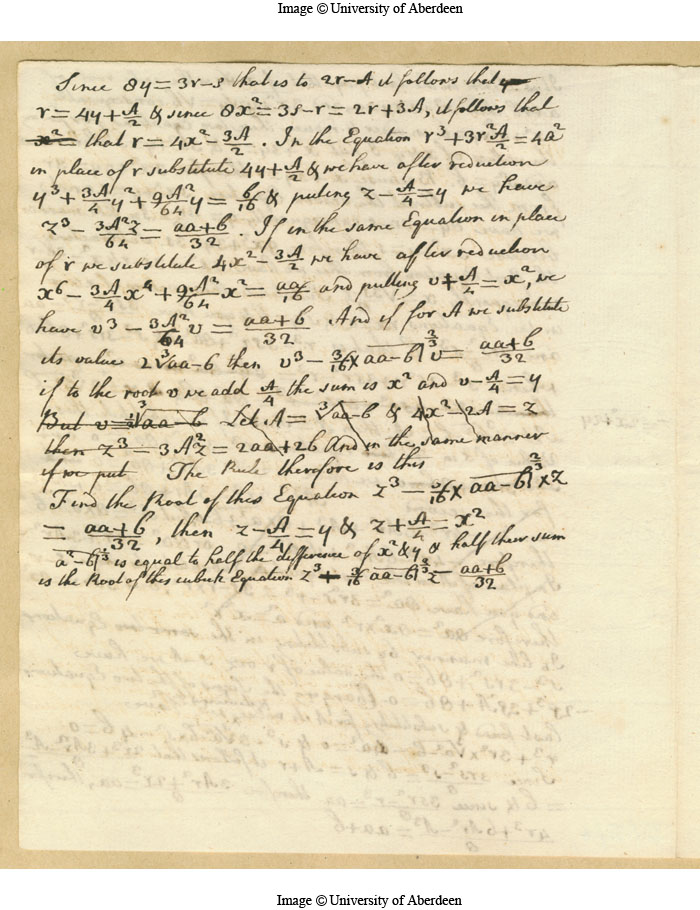 Image © University of Aberdeen
Since 8y = 3r-s that is to 2r-A it follows that y
r = 4y + A/2 & since 8x² = 3s-r = 2r+3A, it follows that
x² = that r = 4x² - 3A/2. In the Equation r³ + 3r²A/2 = 4a²
in place of r substitute 4y + A/2 & we have after reduction
y³ + 3A/4 y² + 9A²/64 y = b/16 & puting z - A/4 = y we have
z³ - 3A²z/64 = aa+b/32. If in the same Equation in place
of r we substitute 4x² - 3A/2 we have after reduction
x⁶ - 3A/4 x⁴ + 9A²/64 x² = aa/16 and putting v + A/4 = x², we
have v³ - 3A²/64 v = aa+b/32 And if for A we substitute
its value 2∛aa-b then v³ - 3/16 × aa-b|^2/3 v = aa+b/32
if to the root v we add A/4 the sum is x² and v - A/4 = y
But v = ∛aa-b Let A = ∛aa-b & 4x² - 2A = z
then z³ - 3A²z = 2aa + 2b And in the same manner
if we put The Rule therefore is this
Find the Root of this Equation z³ - 3/16 × aa-b|^2/3 × z
= aa+b/32, then z - A/4 = y & z + A/4 = x²
a²-b|^1/3 is equal to half the difference of x² & y & half their sum
is the Root of this cubick Equation z³ + 3/16 aa-b|^2/3 z - aa+b/32
Image © University of Aberdeen